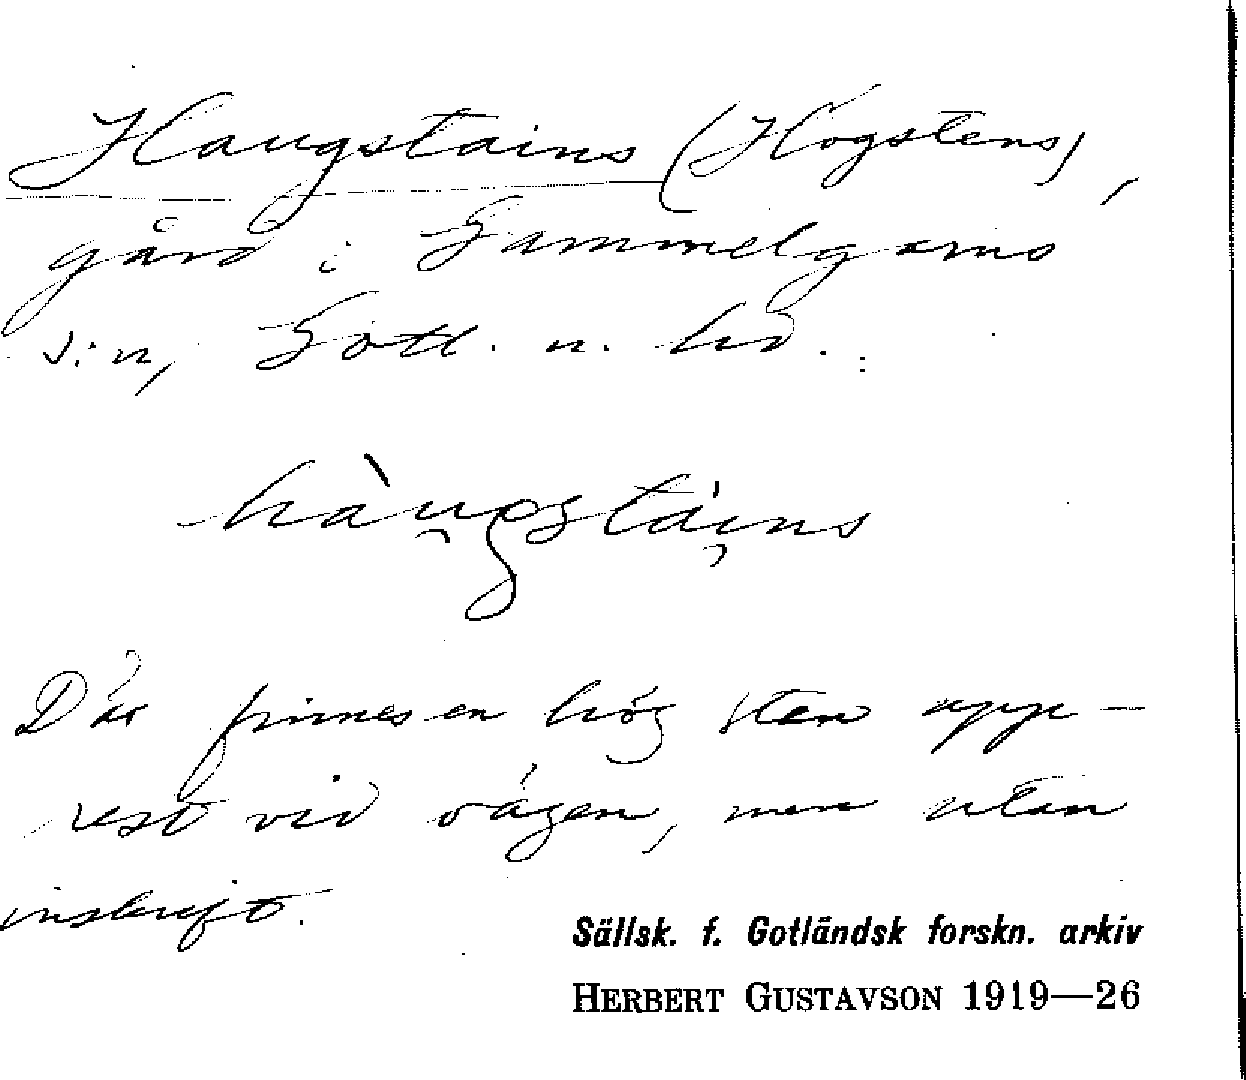 Haugstains (Högstens),
gård i Gammelgarns
s:n, Gotl. n. hd.:
hàu̯gstái̯ns
Där finnes en hög sten upp-
rest vid vägen, men utan
inskrift.
Sällsk. f. Gotländsk forskn. arkiv
HERBERT GUSTAVSON 1919—26